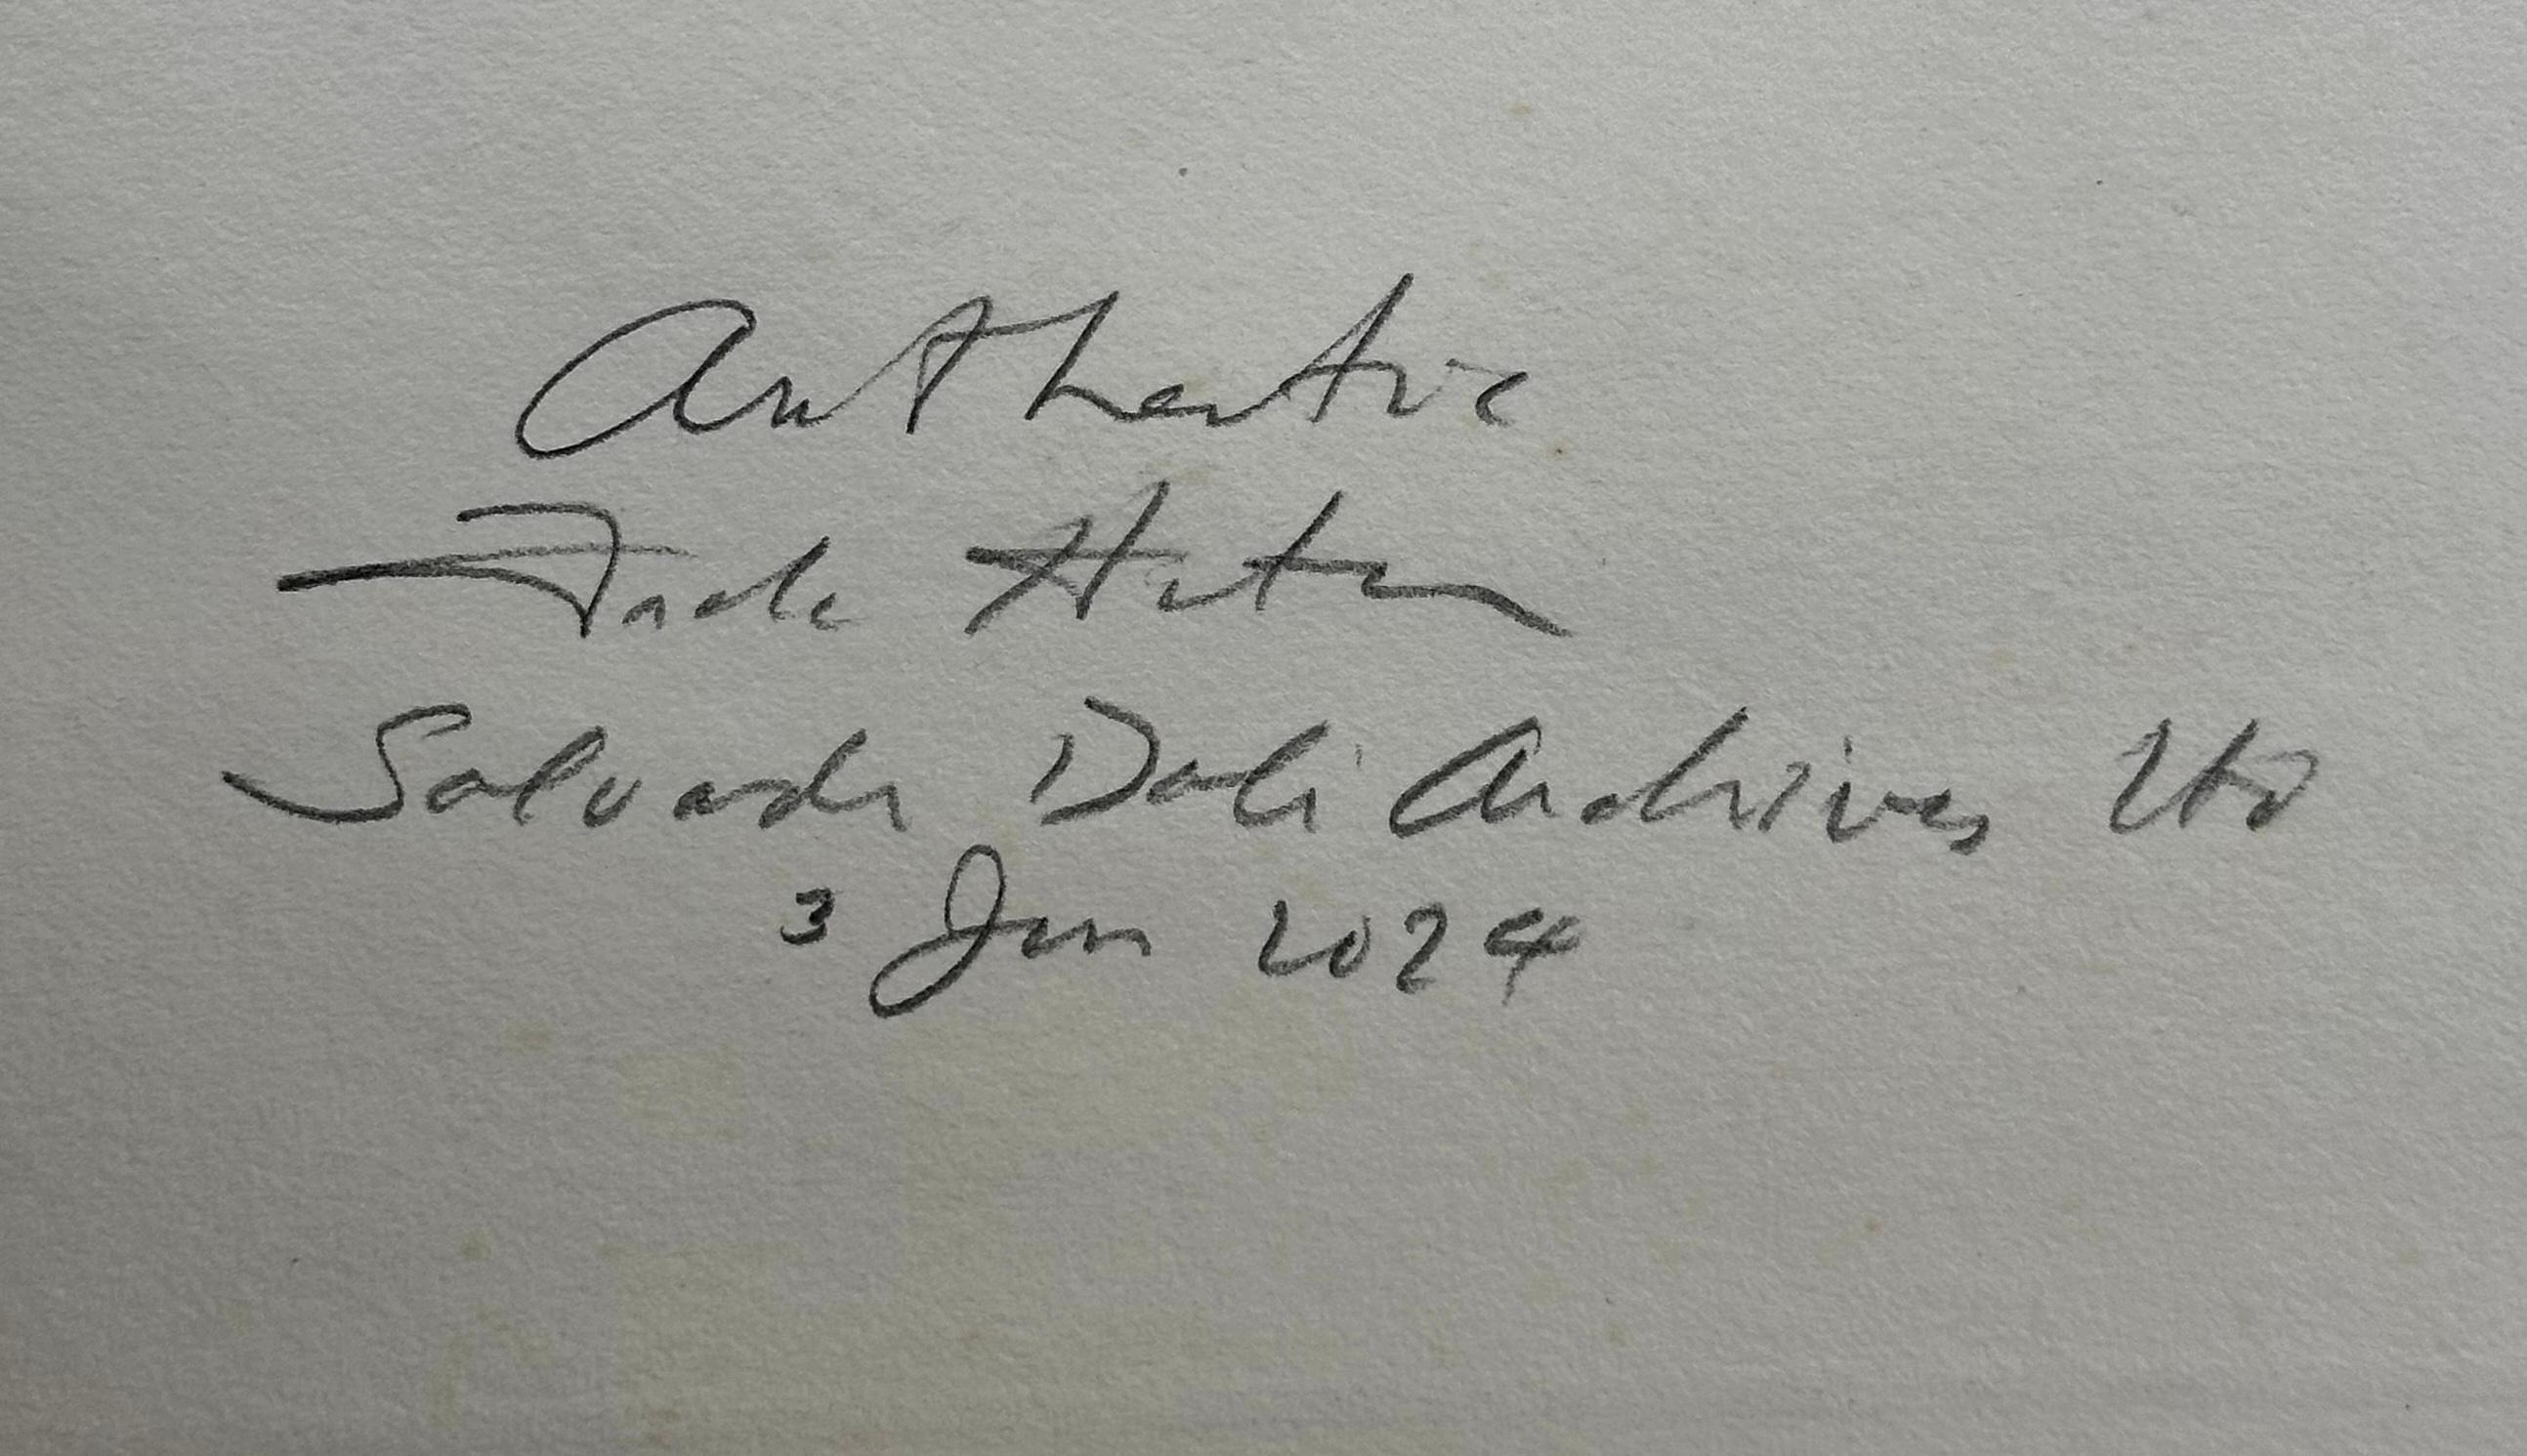 Authentic
Frank Hunter
Salvador Dali Archives Ltd
3 Jun 2024